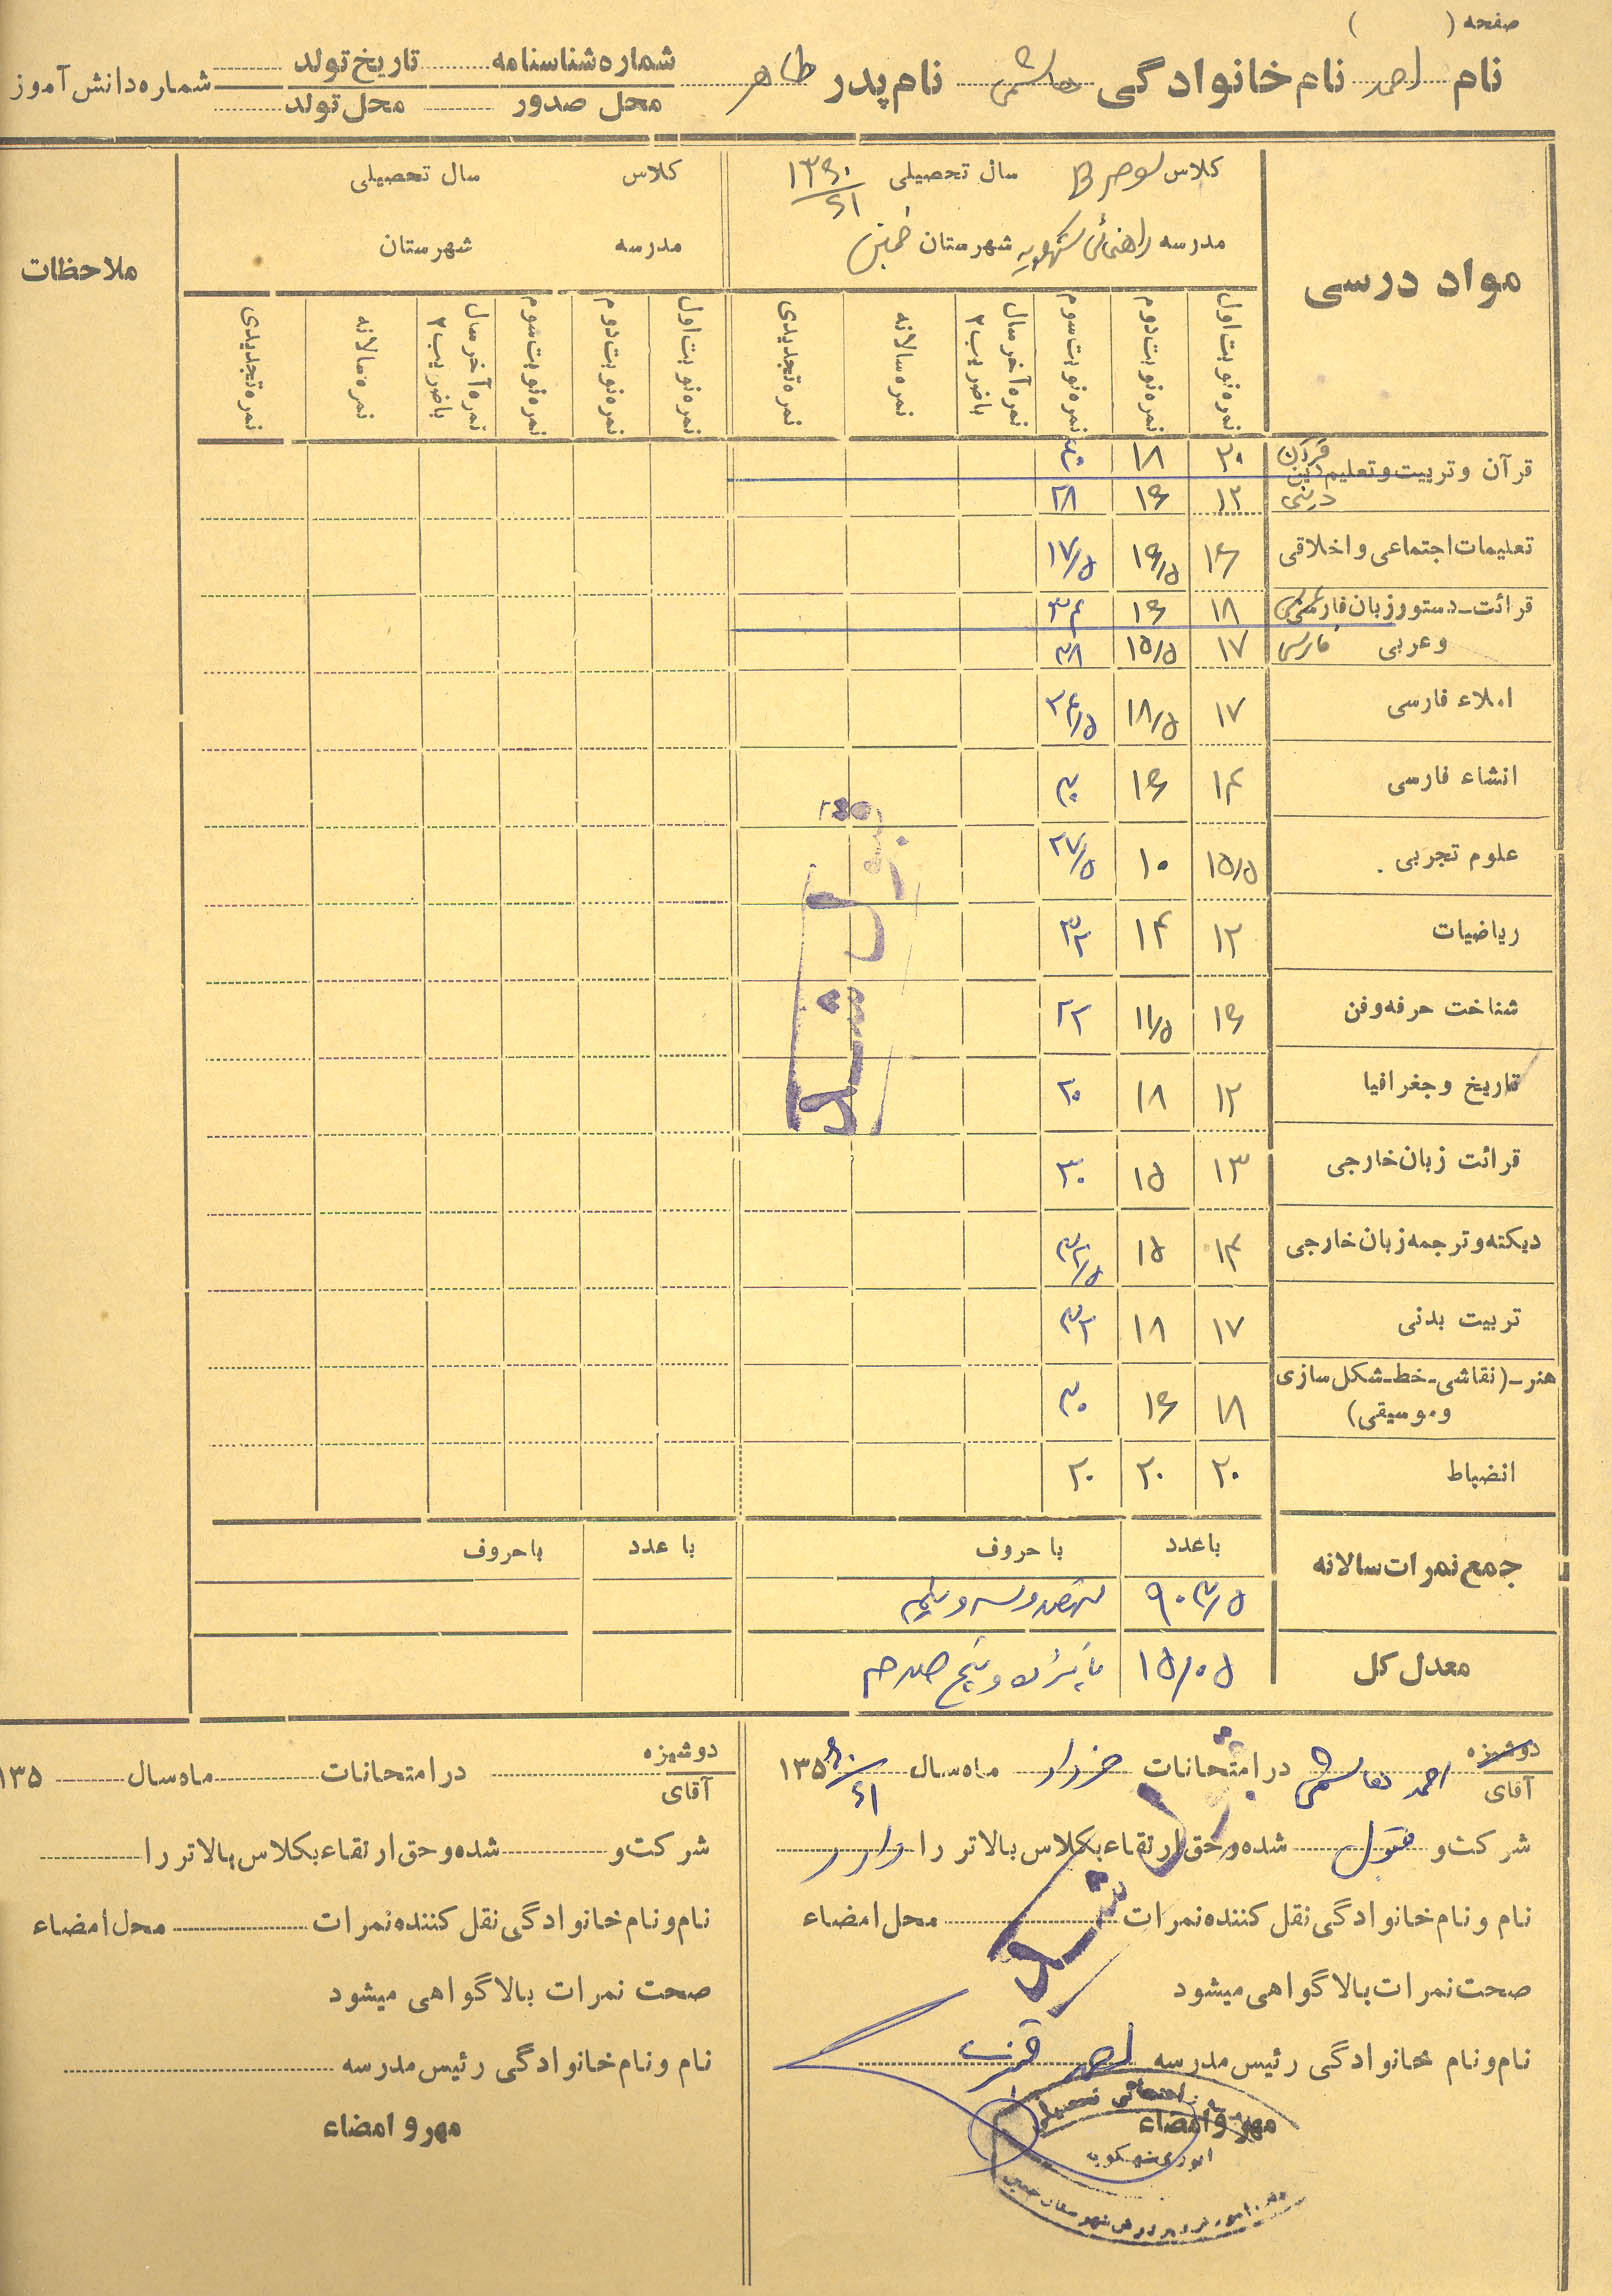 صفحه ( )
نام احمد نام خانوادگی هاشمی نام پدر طاهر شماره شناسنامه تاریخ تولد شماره دانش آموز
محل صدور محل تولد
مواد درسی
کلاس سوم B سال تحصیلی ۱۳۶۰/۶۱
مدرسه راهنمائی شهرستان خمین
کلاس سال تحصیلی
مدرسه شهرستان
ملاحظات
نمره نوبت اول نمره نوبت دوم نمره نوبت سوم نمره آخر سال با ضریب ۲ نمره سالانه نمره تجدیدی نمره نوبت اول نمره نوبت دوم نمره نوبت سوم نمره آخر سال با ضریب ۲ نمره سالانه نمره تجدیدی
قرآن و تربیت و تعلیم دین
قرآن ۲۰ ۱۸
دینی ۱۲ ۱۶ ۲۸
تعلیمات اجتماعی و اخلاقی ۱۶ ۱۶/۵ ۱۷/۵
قرائت - دستور زبان فارسی ۱۸ ۱۶ ۳۴
و عربی فارسی ۱۷ ۱۵/۵ ۲۸
املاء فارسی ۱۷ ۱۸/۵ ۳۴/۵
انشاء فارسی ۱۴ ۱۶ ۳۰
علوم تجربی ۱۵/۵ ۱۰ ۲۷/۵
ریاضیات ۱۲ ۱۴ ۳۲
شناخت حرفه و فن ۱۶ ۱۱/۵ ۲۲
تاریخ و جغرافیا ۱۲ ۱۸ ۲۰
قرائت زبان خارجی ۱۳ ۱۵ ۳۰
دیکته و ترجمه زبان خارجی ۱۴ ۱۵ ۳۲/۵
تربیت بدنی ۱۷ ۱۸ ۳۲
هنر - (نقاشی - خط - شکل سازی ۱۸ ۱۶ ۳۰
و موسیقی)
انضباط ۲۰ ۲۰ ۲۰
قبول شد
جمع نمرات سالانه
با عدد با حروف با عدد با حروف
۹۰۳/۵ نهصد و سه و نیم
معدل کل ۱۵/۰۵ پانزده و پنج صدم
دوشیزه
آقای احمد هاشمی در امتحانات خرداد ماه سال ۱۳۵ ۶۰/۶۱
شرکت و قبول شده و حق ارتقاء بکلاس بالاتر را دارد
نام و نام خانوادگی نقل کننده نمرات محل امضاء
صحت نمرات بالا گواهی میشود
نام و نام خانوادگی رئیس مدرسه احمد
مهر و امضاء
قبول شد
دوشیزه
آقای در امتحانات ماه سال ۱۳۵
شرکت و شده و حق ارتقاء بکلاس بالاتر را
نام و نام خانوادگی نقل کننده نمرات محل امضاء
صحت نمرات بالا گواهی میشود
نام و نام خانوادگی رئیس مدرسه
مهر و امضاء